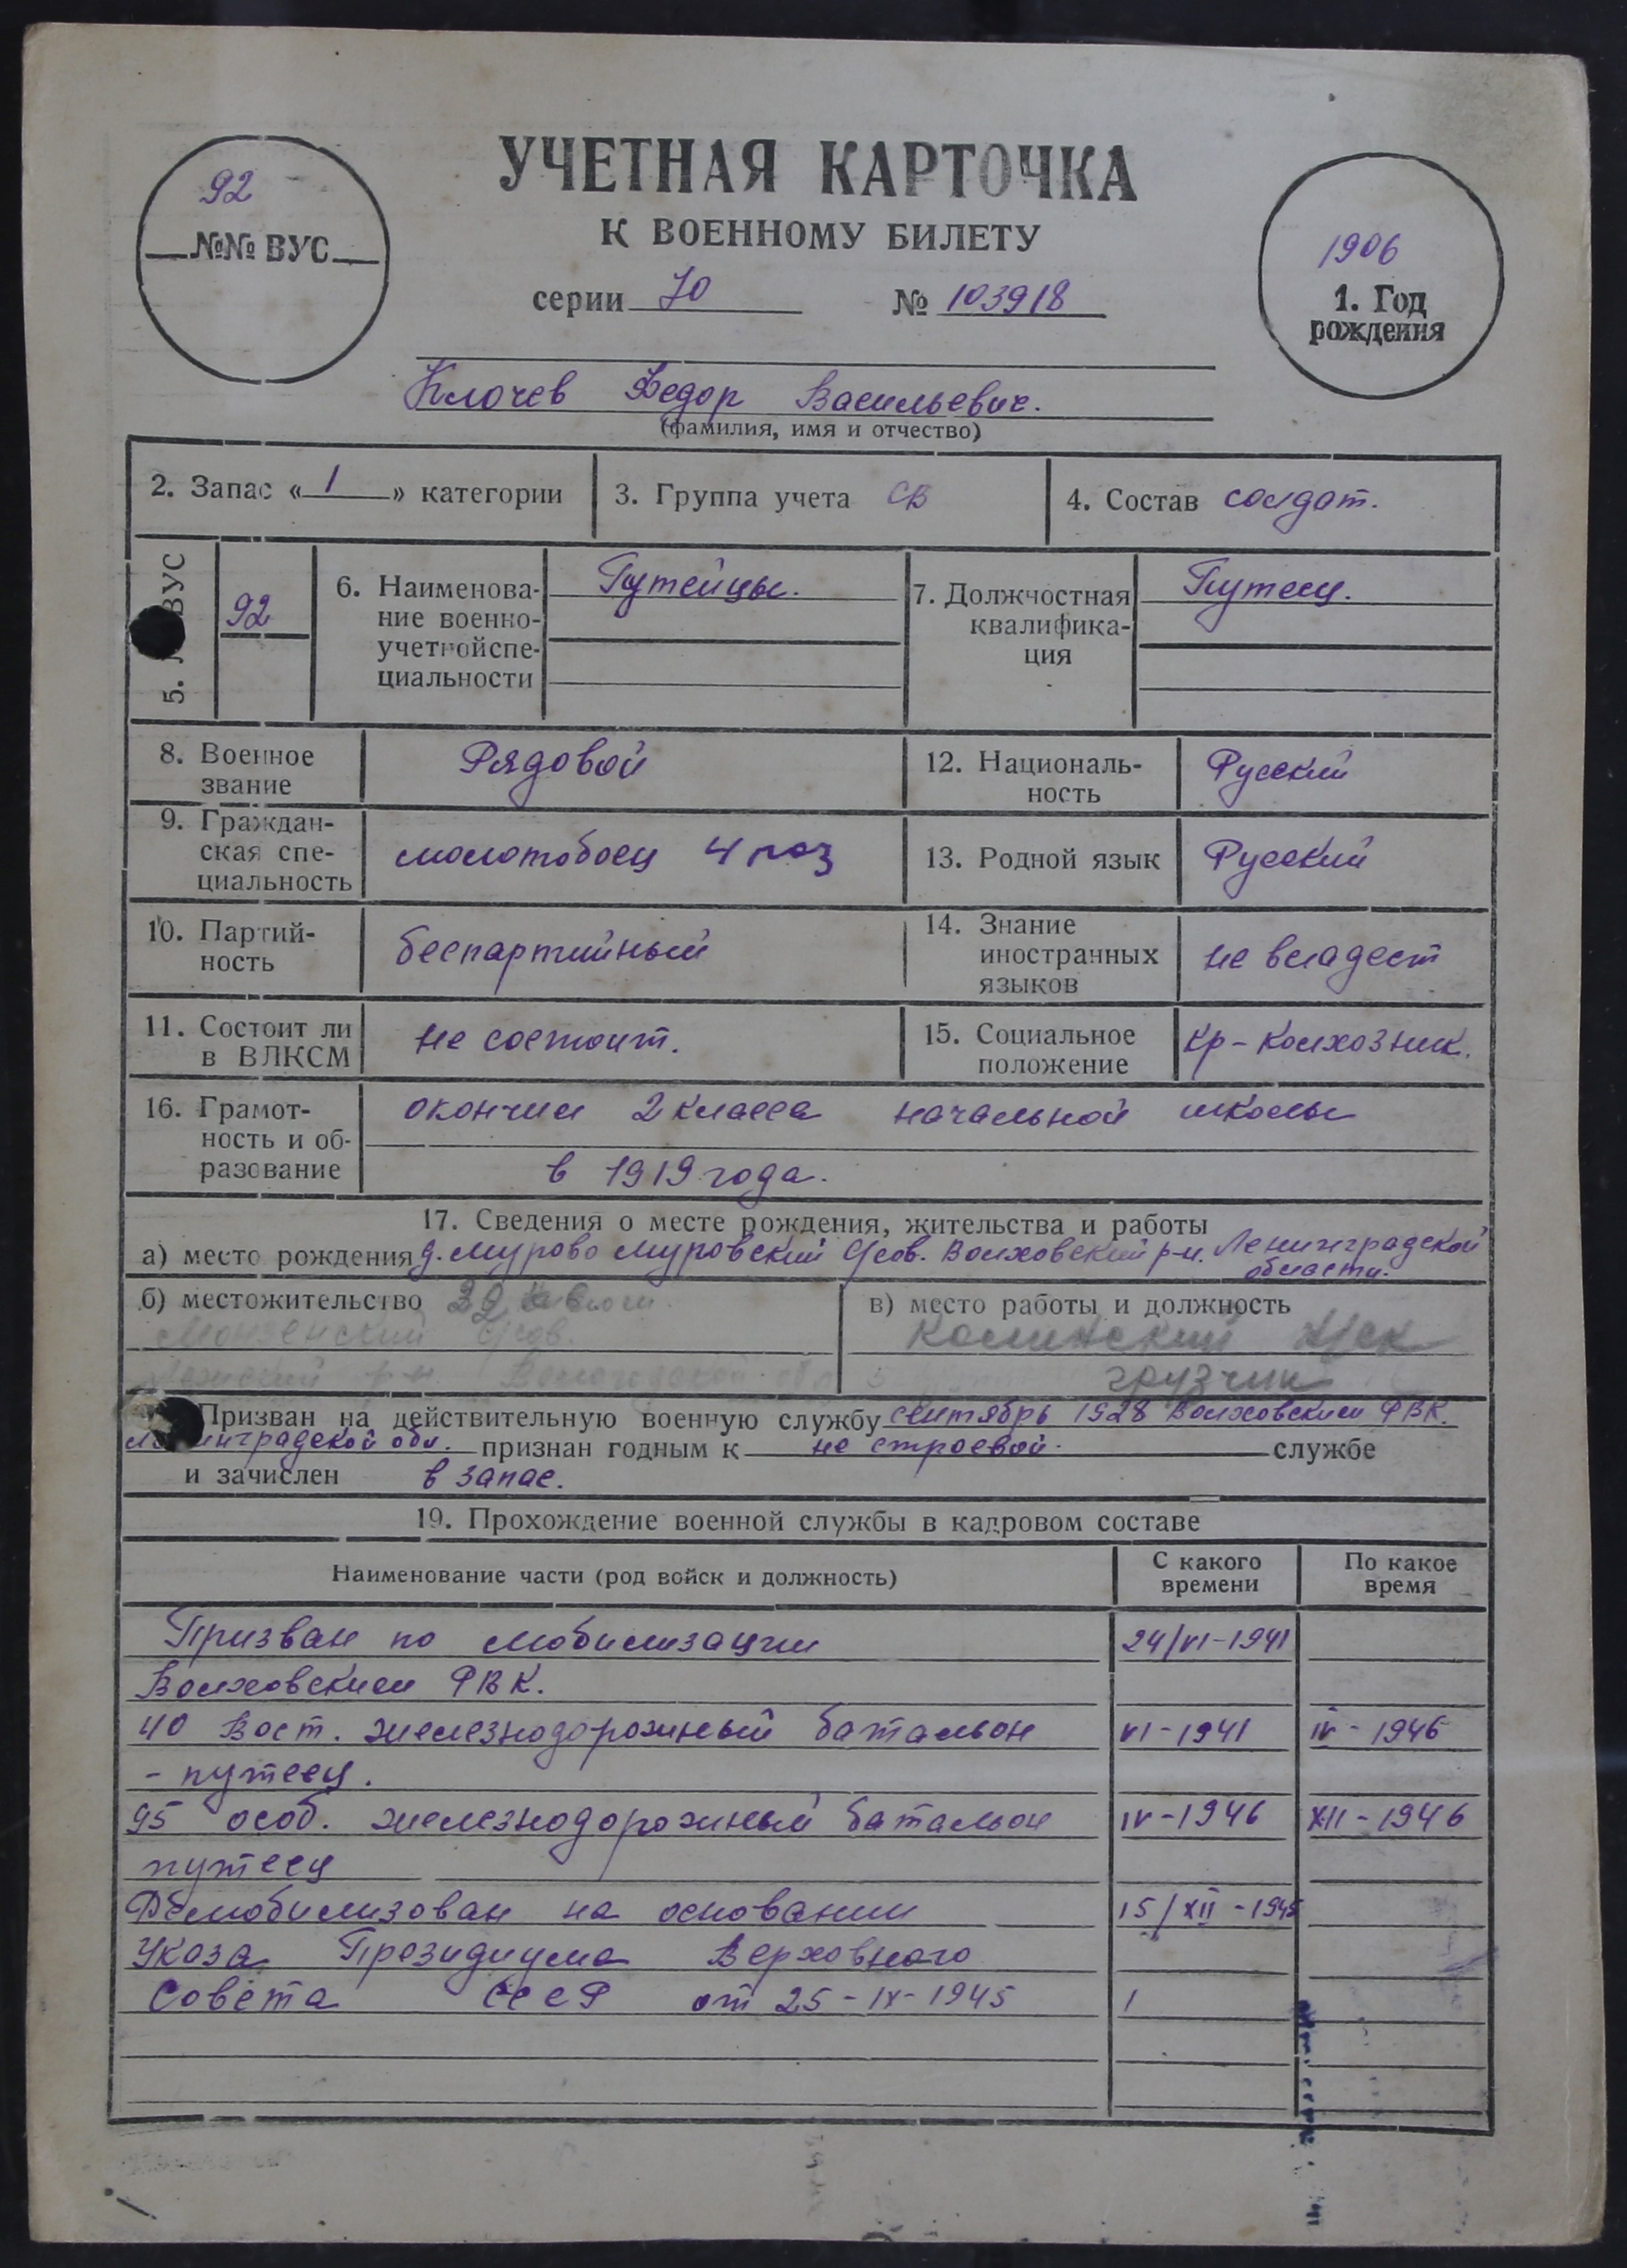 УЧЕТНАЯ КАРТОЧКА
К ВОЕННОМУ БИЛЕТУ
92
№№ ВУС
серии 70 № 103918
1906
1. Год
рождения
Клочев Федор Васильевич.
(фамилия, имя и отчество)
2. Запас « 1 » категории
3. Группа учета СВ
4. Состав солдат.
5. ВУС
92
6. Наименова-
ние военно-
учетной спе-
циальности
Путейцы.
7. Должностная
квалифика-
ция
Путеец.
8. Военное
звание
Рядовой
12. Националь-
ность
Русский
9. Граждан-
ская спе-
циальность
молотобоец 4 раз
13. Родной язык
Русский
10. Партий-
ность
беспартийный
14. Знание
иностранных
языков
не владеет
11. Состоит ли
в ВЛКСМ
не состоит.
15. Социальное
положение
кр-колхозник.
16. Грамот-
ность и об-
разование
окончил 2 класса начальной школы
в 1919 года.
17. Сведения о месте рождения, жительства и работы
а) место рождения д. Мурово Муровский С/сов. Волховский р-н. Ленинградской
области.
б) местожительство
С/сов.
р-н. Вологодской обл
в) место работы и должность
грузчик
Призван на действительную военную службу сентябрь 1928 Волховским РВК.
Ленинградской обл. признан годным к не строевой службе
и зачислен в запас.
19. Прохождение военной службы в кадровом составе
Наименование части (род войск и должность)
С какого
времени
По какое
время
Призван по мобилизации 24/VI-1941
Волховским РВК.
40 Вост. железнодорожный батальон VI-1941 IV-1946
- путеец.
95 особ. железнодорожный батальон IV-1946 XII-1946
путеец
Демобилизован на основании 15/XII-1945
Указа Президиума Верховного
Совета СССР от 25-IX-1945